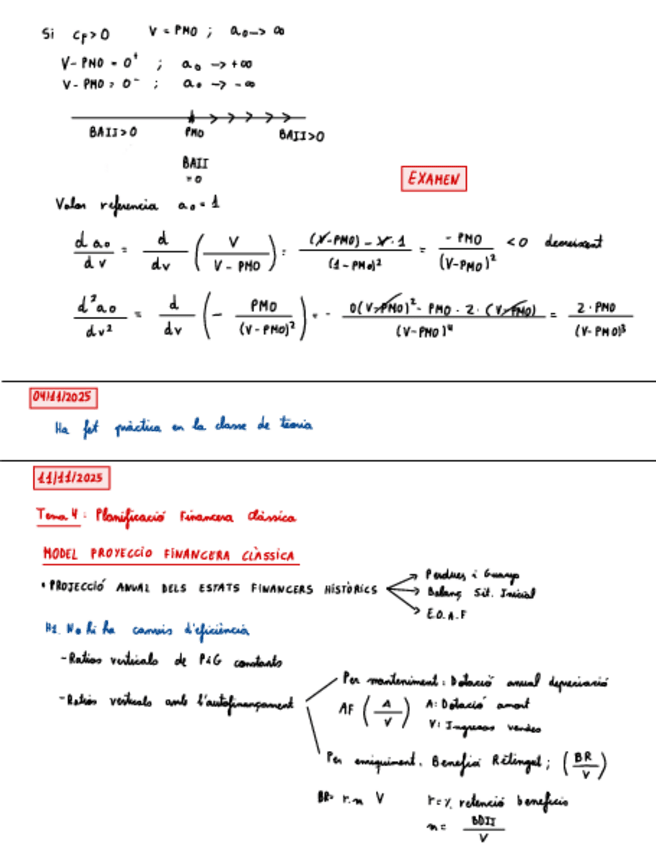 Si cf>0 V = PMO ; a₀ → ∞
V - PMO = 0⁺ ; a₀ → +∞
V - PMO = 0⁻ ; a₀ → -∞
BAII>0 PMO BAII>0
BAII
=0
EXAMEN
Valor referencia a₀ = 1
d a₀ / d v = d / dv ( V / (V - PMO) ) = ((V-PMO) - V·1) / (1-PMO)² = - PMO / (V-PMO)² <0 decreixent
d² a₀ / dv² = d / dv ( - PMO / (V-PMO)² ) = - (0(V-PMO)² - PMO · 2 · (V-PMO)) / (V-PMO)⁴ = 2·PMO / (V-PMO)³
04/11/2025
Ha fet pràctica en la classe de teoria
11/11/2025
Tema 4: Planificació Financera Clàssica
MODEL PROYECCIO FINANCERA CLÀSSICA
• PROJECCIÓ ANUAL DELS ESTATS FINANCERS HISTÒRICS
Perdues i Guanys
Balanç Sit. Inicial
E.O.A.F
H1. No hi ha canvis d'eficiència
- Ratios verticals de PiG constants
- Ratios verticals amb l'autofinançament
Per manteniment: Dotació anual depreciació
AF ( A / V ) A: Dotació amort
V: Ingresos vendes
Per enriquiment. Benefici Retingut; ( BR / V )
BR = r·m V r=% retenció beneficis
m = BDII / V